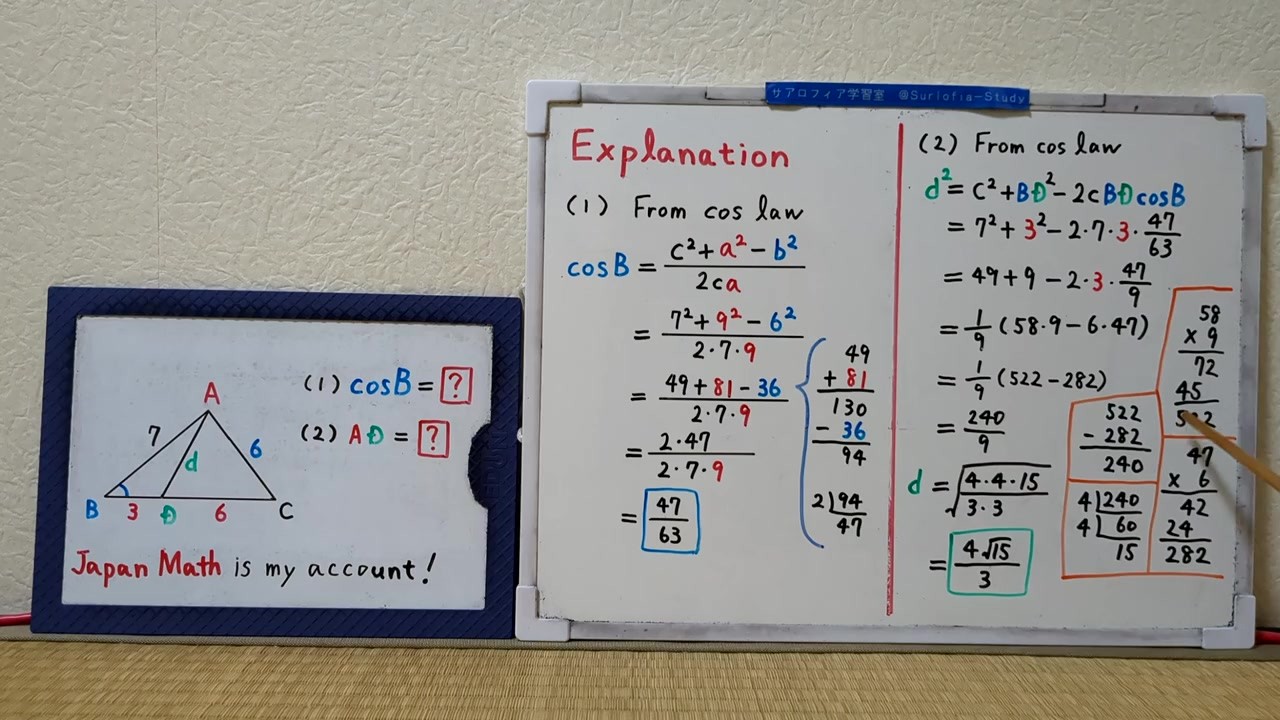 (1) cosB = ?
(2) AD = ?
A
7
6
d
B
3
D
6
C
Japan Math is my account!
サアロフィア学習室 @Surlofia-Study
Explanation
(1) From cos law
cosB = (c² + a² − b²) / 2ca
= (7² + 9² − 6²) / 2·7·9
= (49 + 81 − 36) / 2·7·9
= 2·47 / 2·7·9
= 47/63
49
+ 81
130
− 36
94
2 94
47
(2) From cos law
d² = c² + BD² − 2cBD cosB
= 7² + 3² − 2·7·3· 47/63
= 49 + 9 − 2·3· 47/9
= 1/9 (58·9 − 6·47)
= 1/9 (522 − 282)
= 240/9
d = √(4·4·15 / 3·3)
= 4√15 / 3
58
× 9
72
45
522
− 282
240
47
× 6
42
24
282
4 240
4 60
15